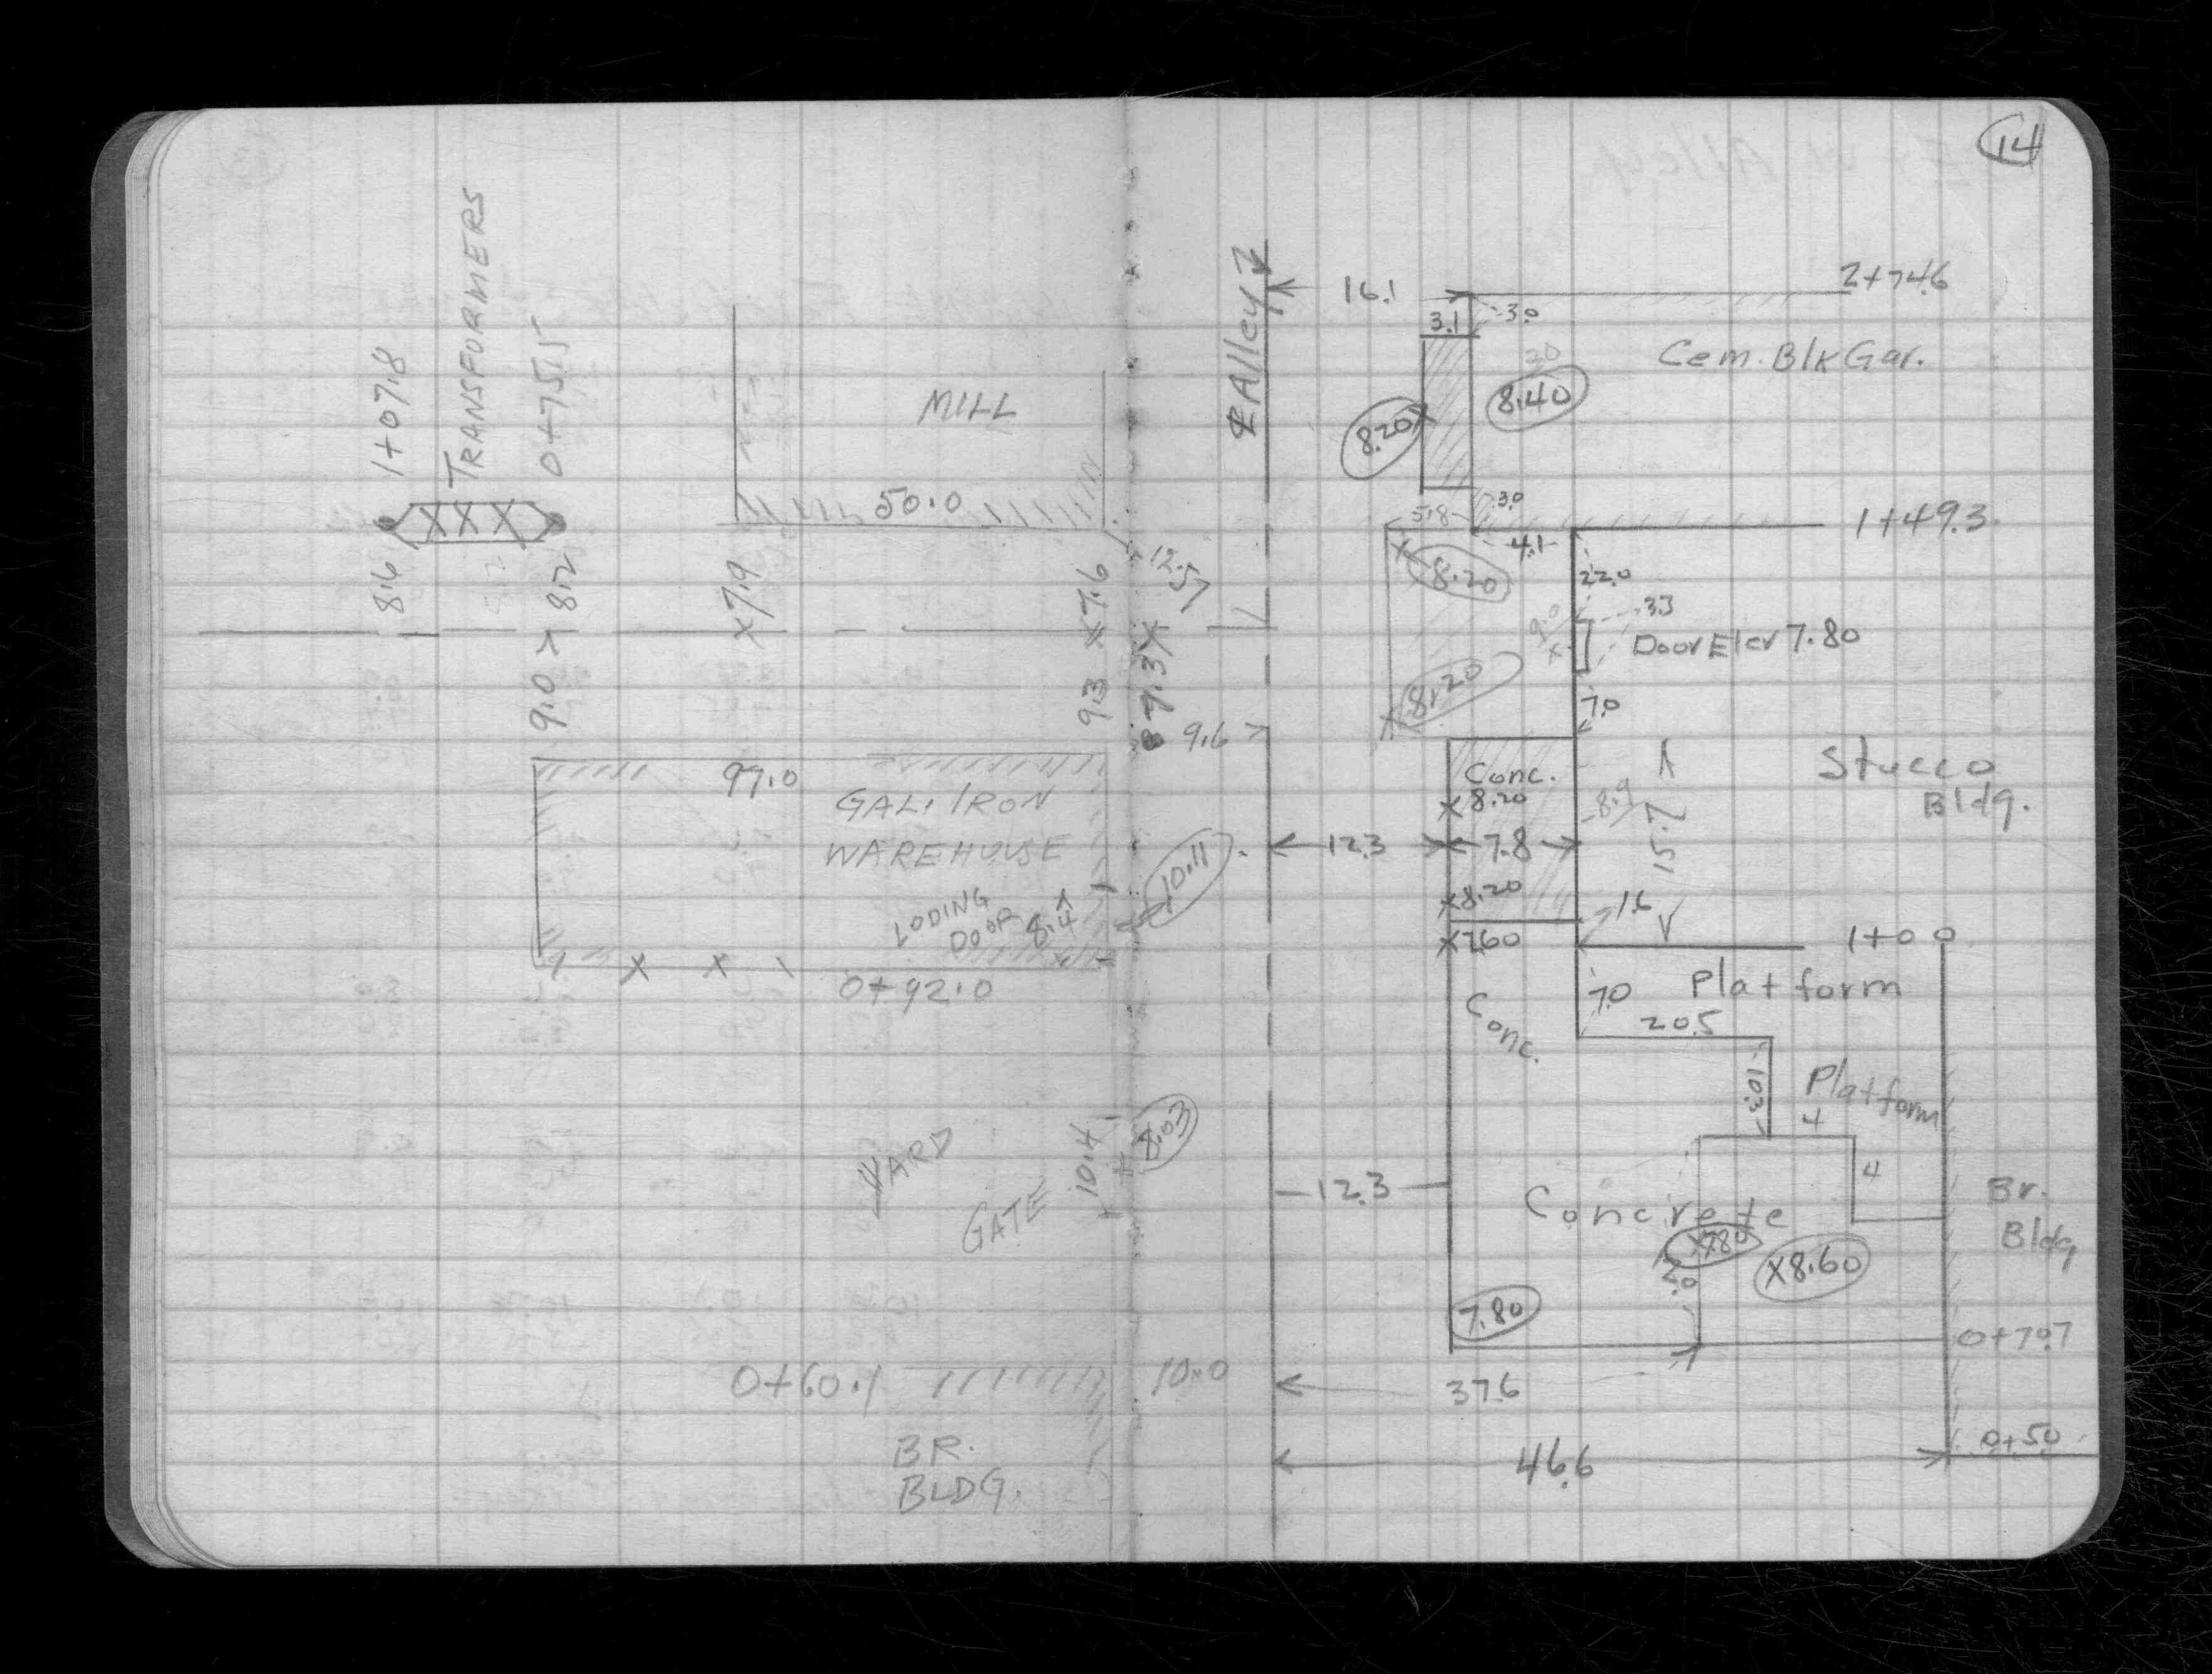 14
TRANSFORMERS
1+07.8
0+75.5
8.6
8.2
9.0
MILL
50.0
X7.9
X7.6
9.3
12.5
87.3X
9.6
97.0
GAL. IRON
WAREHOUSE
LODING
DOOR
8.4
10.11
0+92.0
YARD
GATE
10.4
8.03
0+60.1
10.0
BR.
BLDG.
℄ Alley
16.1
2+74.6
3.1
3.0
Cem. Blk Gar.
20
8.40
8.20X
3.0
5.8
4.1
1+49.3
X8.20
22.0
3.3
9.0
X
Door Elev 7.80
X8.20
7.0
Stucco
Bldg.
Conc.
X8.20
8.9
15.7
12.3
7.8
X8.20
1.6
X7.60
1+00
Conc.
7.0
Platform
20.5
10.3
Platform
4
4
12.3
Concrete
X7.80
X8.60
Br.
Bldg
7.80
0+70.7
37.6
46.6
0+50